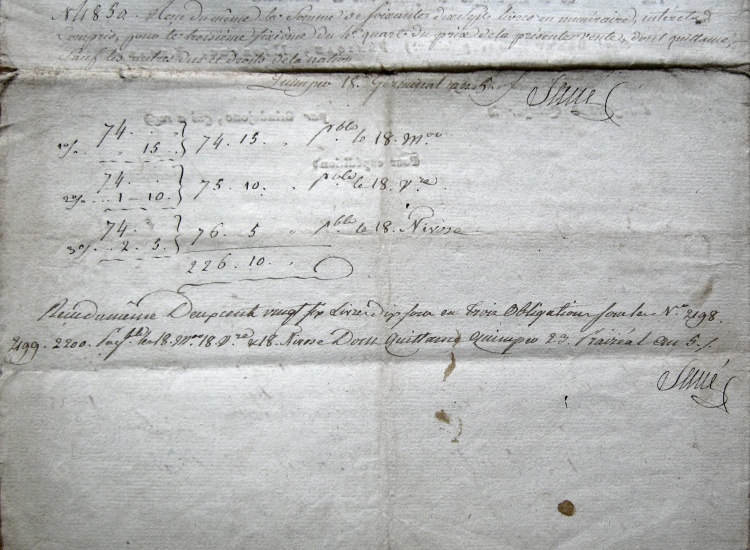 N° 4830. Reçu du même la Somme de soixante dix sept livres en numéraire, intérêts
Compris, pour le troisième sixième du 4e quart du prix de la présente vente, dont quittance,
Sauf les autres dus et droits de la nation.
Quimper 18. Germinal an 5. f.
74. .
1% . . 15 . } 74. 15. " pble le 18. Mor
74. .
2% . . 1 - 10. } 75. 10. " pble le 18. Vre
74.
3% . . 2. 5. } 76. 5 " pble le 18. Nivose
226. 10. "
Reçu du même Deux cent vingt six Livres dix sous en Trois Obligations sous les Nos 2198.
2199. 2200. payble les 18. Mor 18. Vre & 18. Nivose Dont Quittance Quimper 23. Prairéal an 5. /.